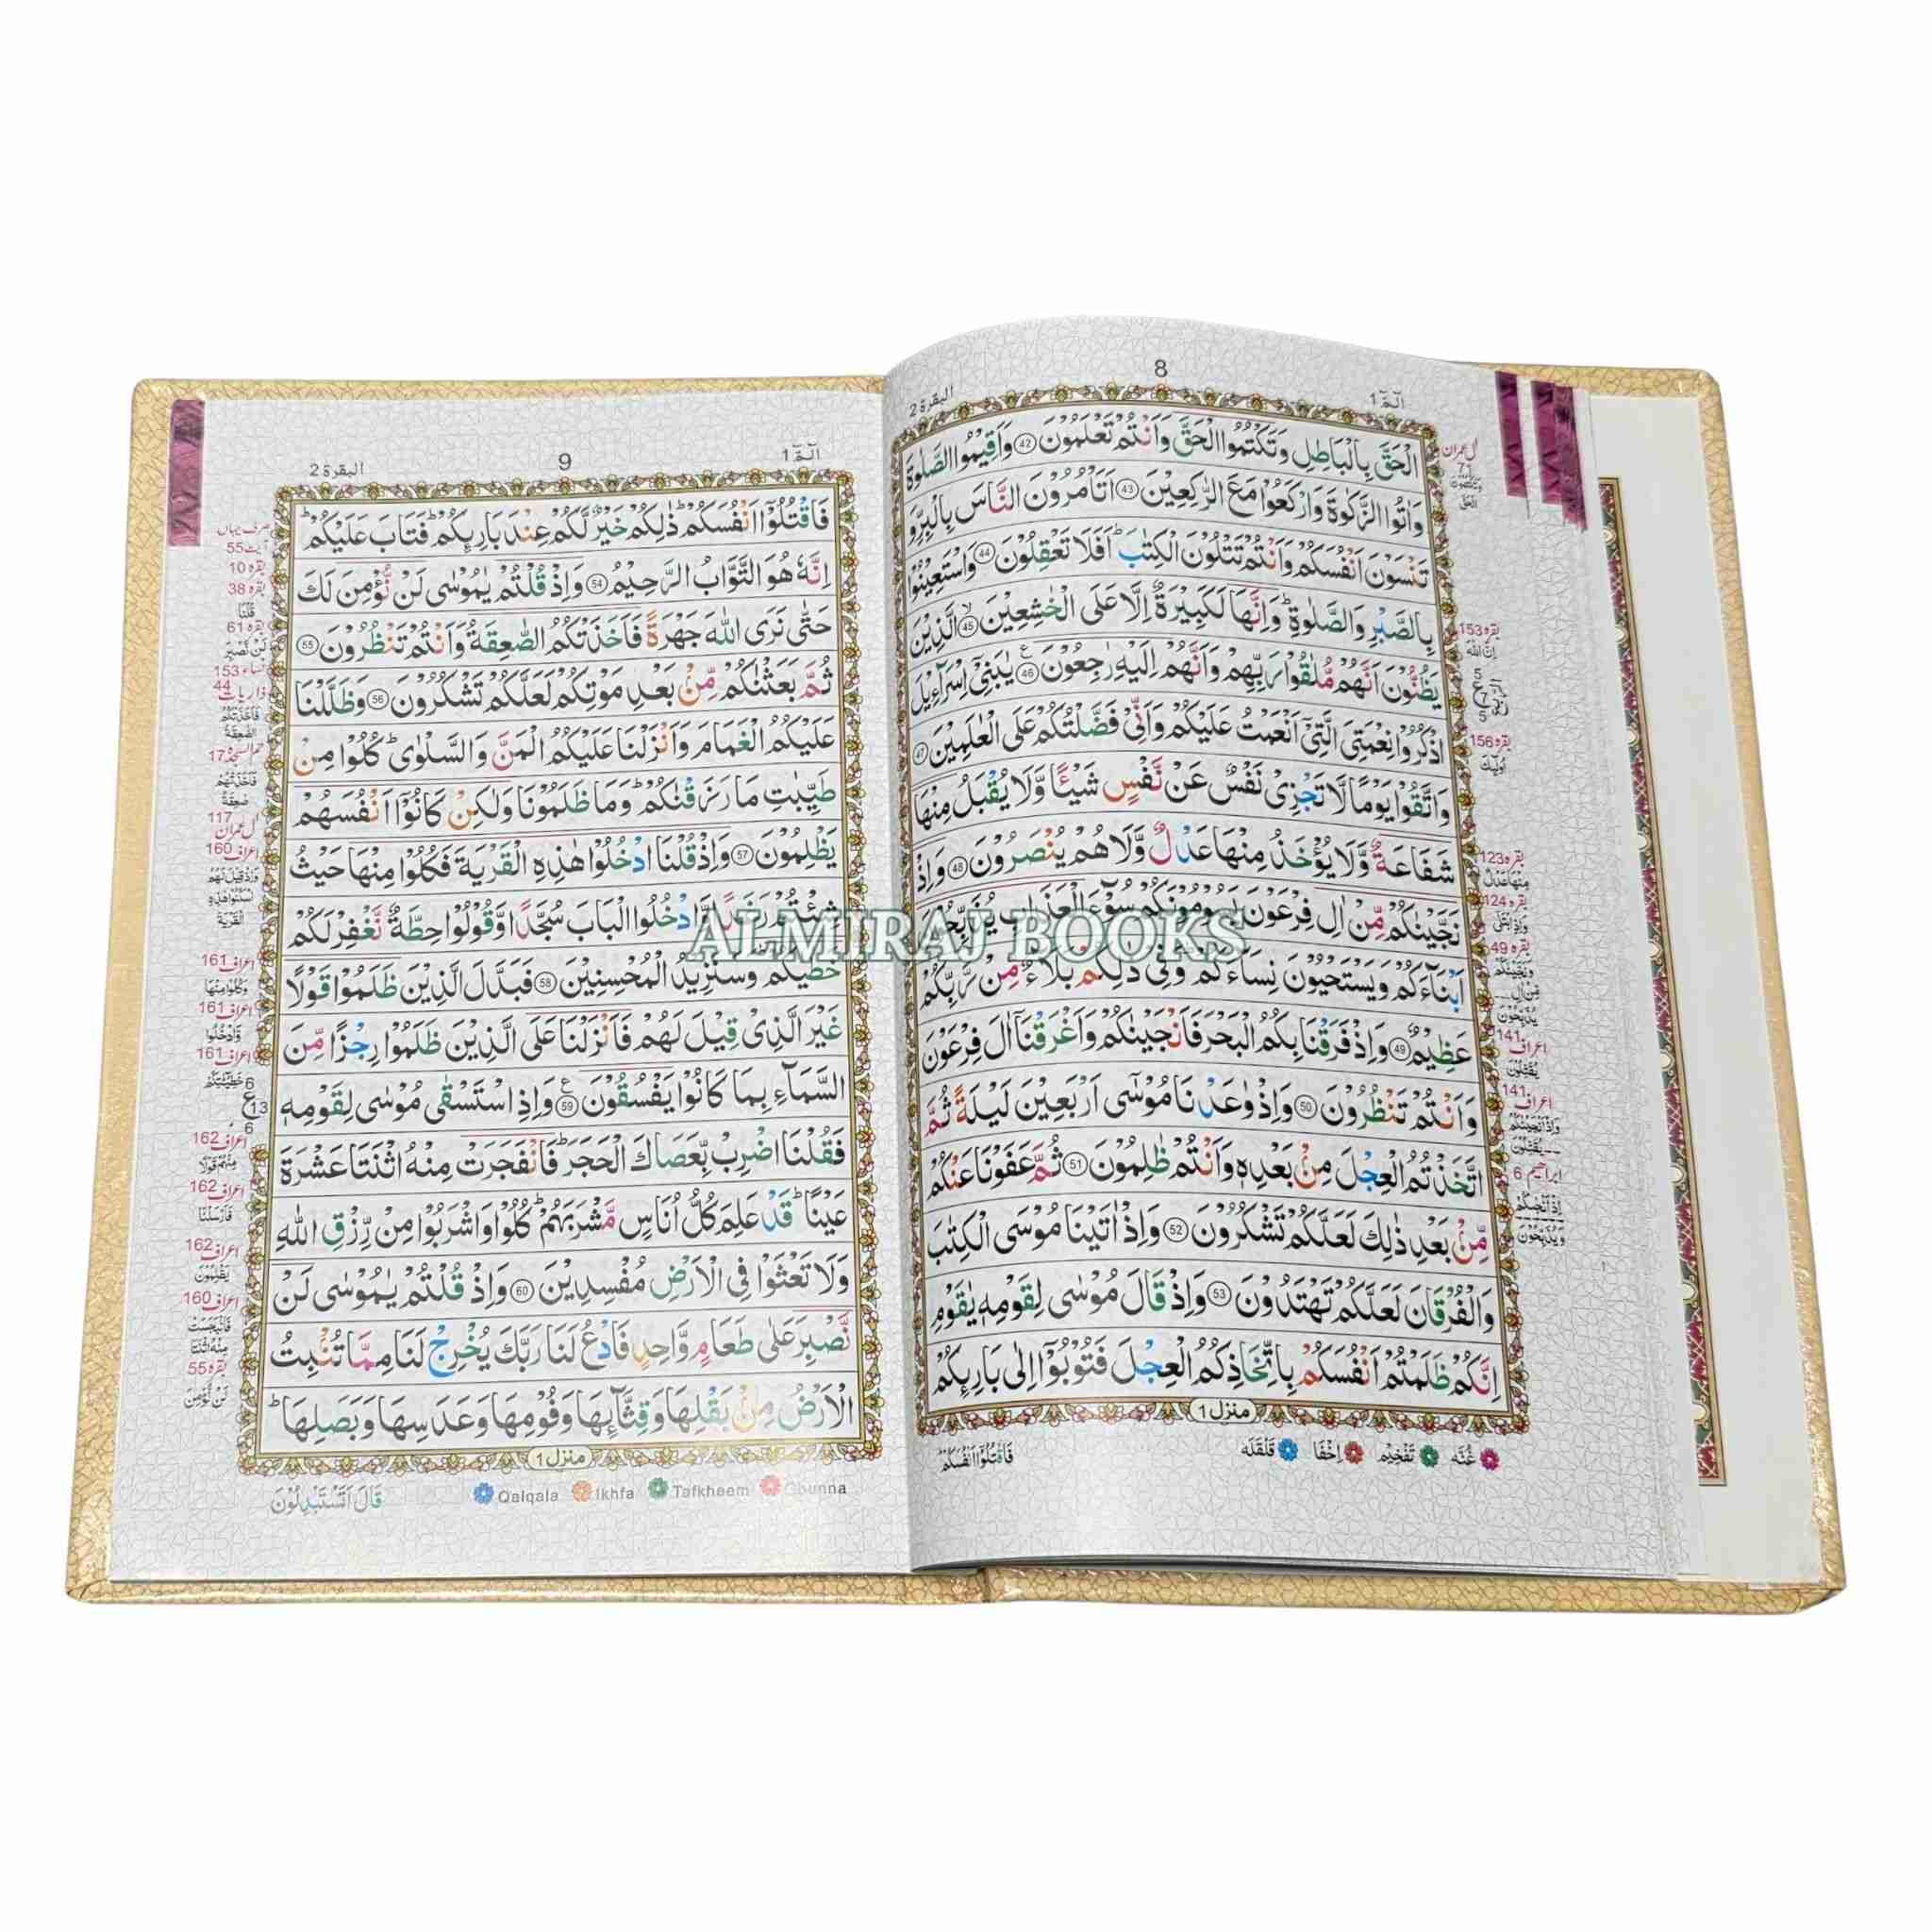 8
الٓمّٓ 1
البقرة 2
الْحَقَّ بِالْبَاطِلِ وَتَكْتُمُوا الْحَقَّ وَاَنْتُمْ تَعْلَمُوْنَ 42 وَاَقِيْمُوا الصَّلٰوةَ
وَاٰتُوا الزَّكٰوةَ وَارْكَعُوْا مَعَ الرّٰكِعِيْنَ 43 اَتَاْمُرُوْنَ النَّاسَ بِالْبِرِّ وَ
تَنْسَوْنَ اَنْفُسَكُمْ وَاَنْتُمْ تَتْلُوْنَ الْكِتٰبَ ؕ اَفَلَا تَعْقِلُوْنَ 44 وَاسْتَعِيْنُوْا
بِالصَّبْرِ وَالصَّلٰوةِ ؕ وَاِنَّهَا لَكَبِيْرَةٌ اِلَّا عَلَى الْخٰشِعِيْنَ 45 الَّذِيْنَ
يَظُنُّوْنَ اَنَّهُمْ مُّلٰقُوْا رَبِّهِمْ وَاَنَّهُمْ اِلَيْهِ رٰجِعُوْنَ 46 يٰبَنِيْٓ اِسْرَآءِيْلَ
اذْكُرُوْا نِعْمَتِيَ الَّتِيْٓ اَنْعَمْتُ عَلَيْكُمْ وَاَنِّيْ فَضَّلْتُكُمْ عَلَى الْعٰلَمِيْنَ 47
وَاتَّقُوْا يَوْمًا لَّا تَجْزِيْ نَفْسٌ عَنْ نَّفْسٍ شَيْـًٔا وَّلَا يُقْبَلُ مِنْهَا
شَفَاعَةٌ وَّلَا يُؤْخَذُ مِنْهَا عَدْلٌ وَّلَا هُمْ يُنْصَرُوْنَ 48 وَاِذْ
نَجَّيْنٰكُمْ مِّنْ اٰلِ فِرْعَوْنَ يَسُوْمُوْنَكُمْ سُوْٓءَ الْعَذَابِ يُذَبِّحُوْنَ
اَبْنَآءَكُمْ وَيَسْتَحْيُوْنَ نِسَآءَكُمْ ؕ وَفِيْ ذٰلِكُمْ بَلَآءٌ مِّنْ رَّبِّكُمْ
عَظِيْمٌ 49 وَاِذْ فَرَقْنَا بِكُمُ الْبَحْرَ فَاَنْجَيْنٰكُمْ وَاَغْرَقْنَآ اٰلَ فِرْعَوْنَ
وَاَنْتُمْ تَنْظُرُوْنَ 50 وَاِذْ وٰعَدْنَا مُوْسٰٓى اَرْبَعِيْنَ لَيْلَةً ثُمَّ
اتَّخَذْتُمُ الْعِجْلَ مِنْۢ بَعْدِهٖ وَاَنْتُمْ ظٰلِمُوْنَ 51 ثُمَّ عَفَوْنَا عَنْكُمْ
مِّنْۢ بَعْدِ ذٰلِكَ لَعَلَّكُمْ تَشْكُرُوْنَ 52 وَاِذْ اٰتَيْنَا مُوْسَى الْكِتٰبَ
وَالْفُرْقَانَ لَعَلَّكُمْ تَهْتَدُوْنَ 53 وَاِذْ قَالَ مُوْسٰى لِقَوْمِهٖ يٰقَوْمِ
اِنَّكُمْ ظَلَمْتُمْ اَنْفُسَكُمْ بِاتِّخَاذِكُمُ الْعِجْلَ فَتُوْبُوْٓا اِلٰى بَارِئِكُمْ
منزل 1
غُنَّه تَفْخِيْم اِخْفَا قَلْقَلَه
فَاقْتُلُوْٓا اَنْفُسَكُمْ
بقره 153
اِنَّ اللّٰهَ
بقره 156
اُولٰٓئِكَ
بقره 123
مِنْهَا عَدْلٌ
بقره 124
بقره 49
اعراف 141
يُقَتِّلُوْنَ
اعراف 141
وَاِذْ اَنْجَيْنٰكُمْ
يُقَتِّلُوْنَ
ابراهيم 6
اِذْ اَنْجٰىكُمْ
وَيُذَبِّحُوْنَ
9
الٓمّٓ 1
البقرة 2
فَاقْتُلُوْٓا اَنْفُسَكُمْ ؕ ذٰلِكُمْ خَيْرٌ لَّكُمْ عِنْدَ بَارِئِكُمْ ؕ فَتَابَ عَلَيْكُمْ ؕ
اِنَّهٗ هُوَ التَّوَّابُ الرَّحِيْمُ 54 وَاِذْ قُلْتُمْ يٰمُوْسٰى لَنْ نُّؤْمِنَ لَكَ
حَتّٰى نَرَى اللّٰهَ جَهْرَةً فَاَخَذَتْكُمُ الصّٰعِقَةُ وَاَنْتُمْ تَنْظُرُوْنَ 55
ثُمَّ بَعَثْنٰكُمْ مِّنْۢ بَعْدِ مَوْتِكُمْ لَعَلَّكُمْ تَشْكُرُوْنَ 56 وَظَلَّلْنَا
عَلَيْكُمُ الْغَمَامَ وَاَنْزَلْنَا عَلَيْكُمُ الْمَنَّ وَالسَّلْوٰى ؕ كُلُوْا مِنْ
طَيِّبٰتِ مَا رَزَقْنٰكُمْ ؕ وَمَا ظَلَمُوْنَا وَلٰكِنْ كَانُوْٓا اَنْفُسَهُمْ
يَظْلِمُوْنَ 57 وَاِذْ قُلْنَا ادْخُلُوْا هٰذِهِ الْقَرْيَةَ فَكُلُوْا مِنْهَا حَيْثُ
شِئْتُمْ رَغَدًا وَّادْخُلُوا الْبَابَ سُجَّدًا وَّقُوْلُوْا حِطَّةٌ نَّغْفِرْ لَكُمْ
خَطٰيٰكُمْ ؕ وَسَنَزِيْدُ الْمُحْسِنِيْنَ 58 فَبَدَّلَ الَّذِيْنَ ظَلَمُوْا قَوْلًا
غَيْرَ الَّذِيْ قِيْلَ لَهُمْ فَاَنْزَلْنَا عَلَى الَّذِيْنَ ظَلَمُوْا رِجْزًا مِّنَ
السَّمَآءِ بِمَا كَانُوْا يَفْسُقُوْنَ 59 وَاِذِ اسْتَسْقٰى مُوْسٰى لِقَوْمِهٖ
فَقُلْنَا اضْرِبْ بِّعَصَاكَ الْحَجَرَ ؕ فَانْفَجَرَتْ مِنْهُ اثْنَتَا عَشْرَةَ
عَيْنًا ؕ قَدْ عَلِمَ كُلُّ اُنَاسٍ مَّشْرَبَهُمْ ؕ كُلُوْا وَاشْرَبُوْا مِنْ رِّزْقِ اللّٰهِ
وَلَا تَعْثَوْا فِي الْاَرْضِ مُفْسِدِيْنَ 60 وَاِذْ قُلْتُمْ يٰمُوْسٰى لَنْ
نَّصْبِرَ عَلٰى طَعَامٍ وَّاحِدٍ فَادْعُ لَنَا رَبَّكَ يُخْرِجْ لَنَا مِمَّا تُنْۢبِتُ
الْاَرْضُ مِنْۢ بَقْلِهَا وَقِثَّآئِهَا وَفُوْمِهَا وَعَدَسِهَا وَبَصَلِهَا ؕ
منزل 1
Qalqala Ikhfa Tafkheem Ghunna
قَالَ اَتَسْتَبْدِلُوْنَ
بقره 10
بقره 38
قُلْنَا
بقره 61
لَنْ نَّصْبِرَ
نساء 153
ذاريات 44
اعراف 160
اعراف 161
وَكُلُوْا مِنْهَا
اعراف 161
وَادْخُلُوا
اعراف 161
اعراف 162
مِنْهُمْ قَوْلًا
اعراف 162
فَاَرْسَلْنَا
اعراف 162
يَظْلِمُوْنَ
اعراف 160
فَانْۢبَجَسَتْ
مِنْهُ اثْنَتَا
بقره 55
لَنْ نُّؤْمِنَ
ALMIRAJ BOOKS